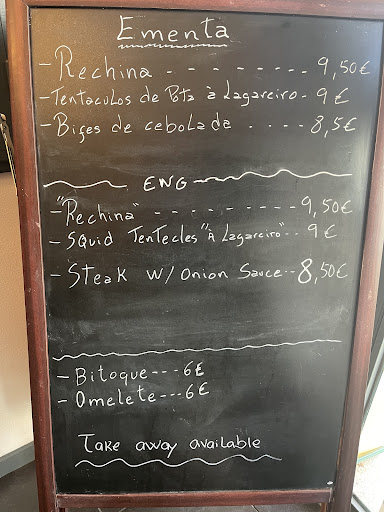 Ementa
- Rechina - - - - - - - - - 9,50€
- Tentaculos de Pota à Lagareiro - 9€
- Bifes de cebolada - - - - 8,5€
ENG
- "Rechina" - - - - - - - - - 9,50€
- Squid Tentecles "À Lagareiro" - - 9€
- Steak w/ Onion Sauce - - 8,50€
- Bitoque - - - 6€
- Omelete - - - 6€
Take away available